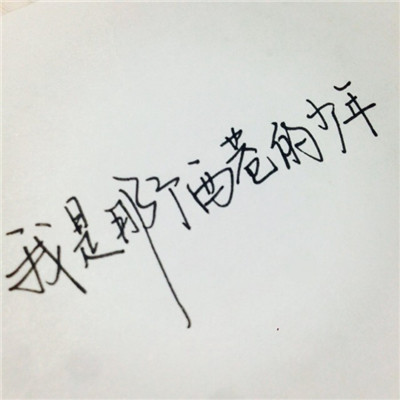 我是那个西巷的少年